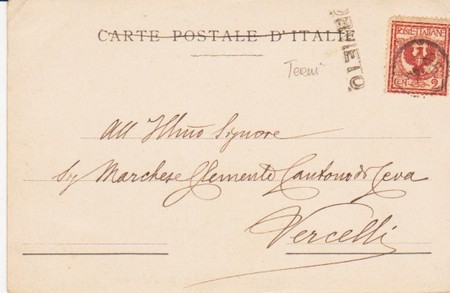 CARTE POSTALE D'ITALIE
Terni
POSTE ITALIANE
All Illmo Signore
Sg Marchese Clemente Cantono di Ceva
Vercelli